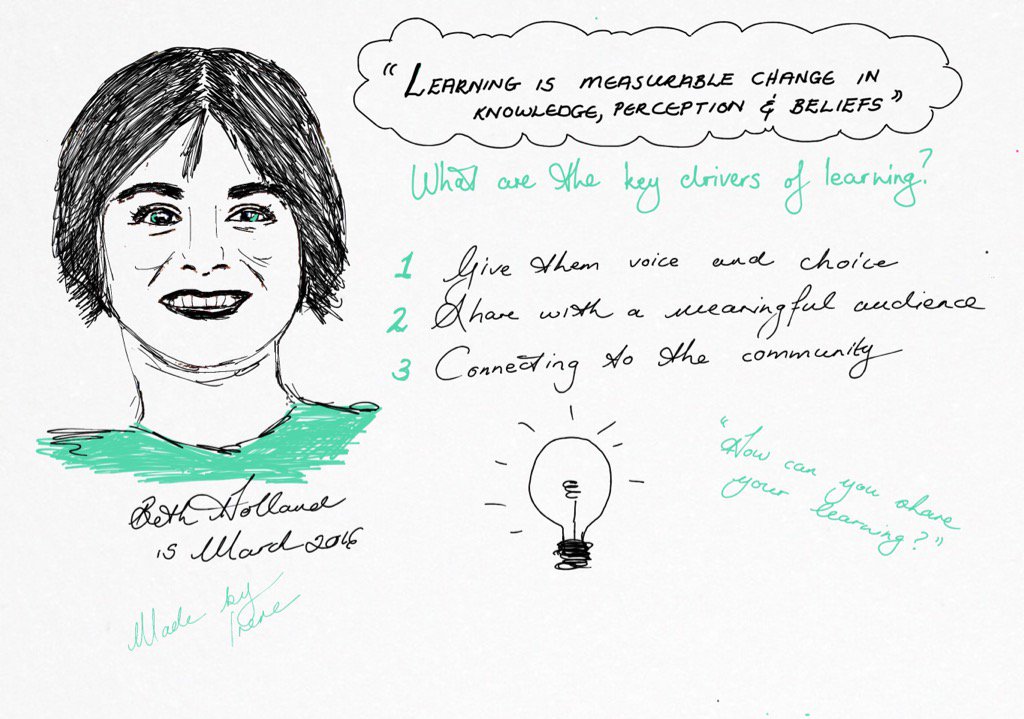 "LEARNING IS MEASURABLE CHANGE IN
KNOWLEDGE, PERCEPTION & BELIEFS"
What are the key drivers of learning?
1 Give them voice and choice
2 Share with a meaningful audience
3 Connecting to the community
"How can you share
your learning?"
Beth Holland
15 March 2016
Made by
Irene